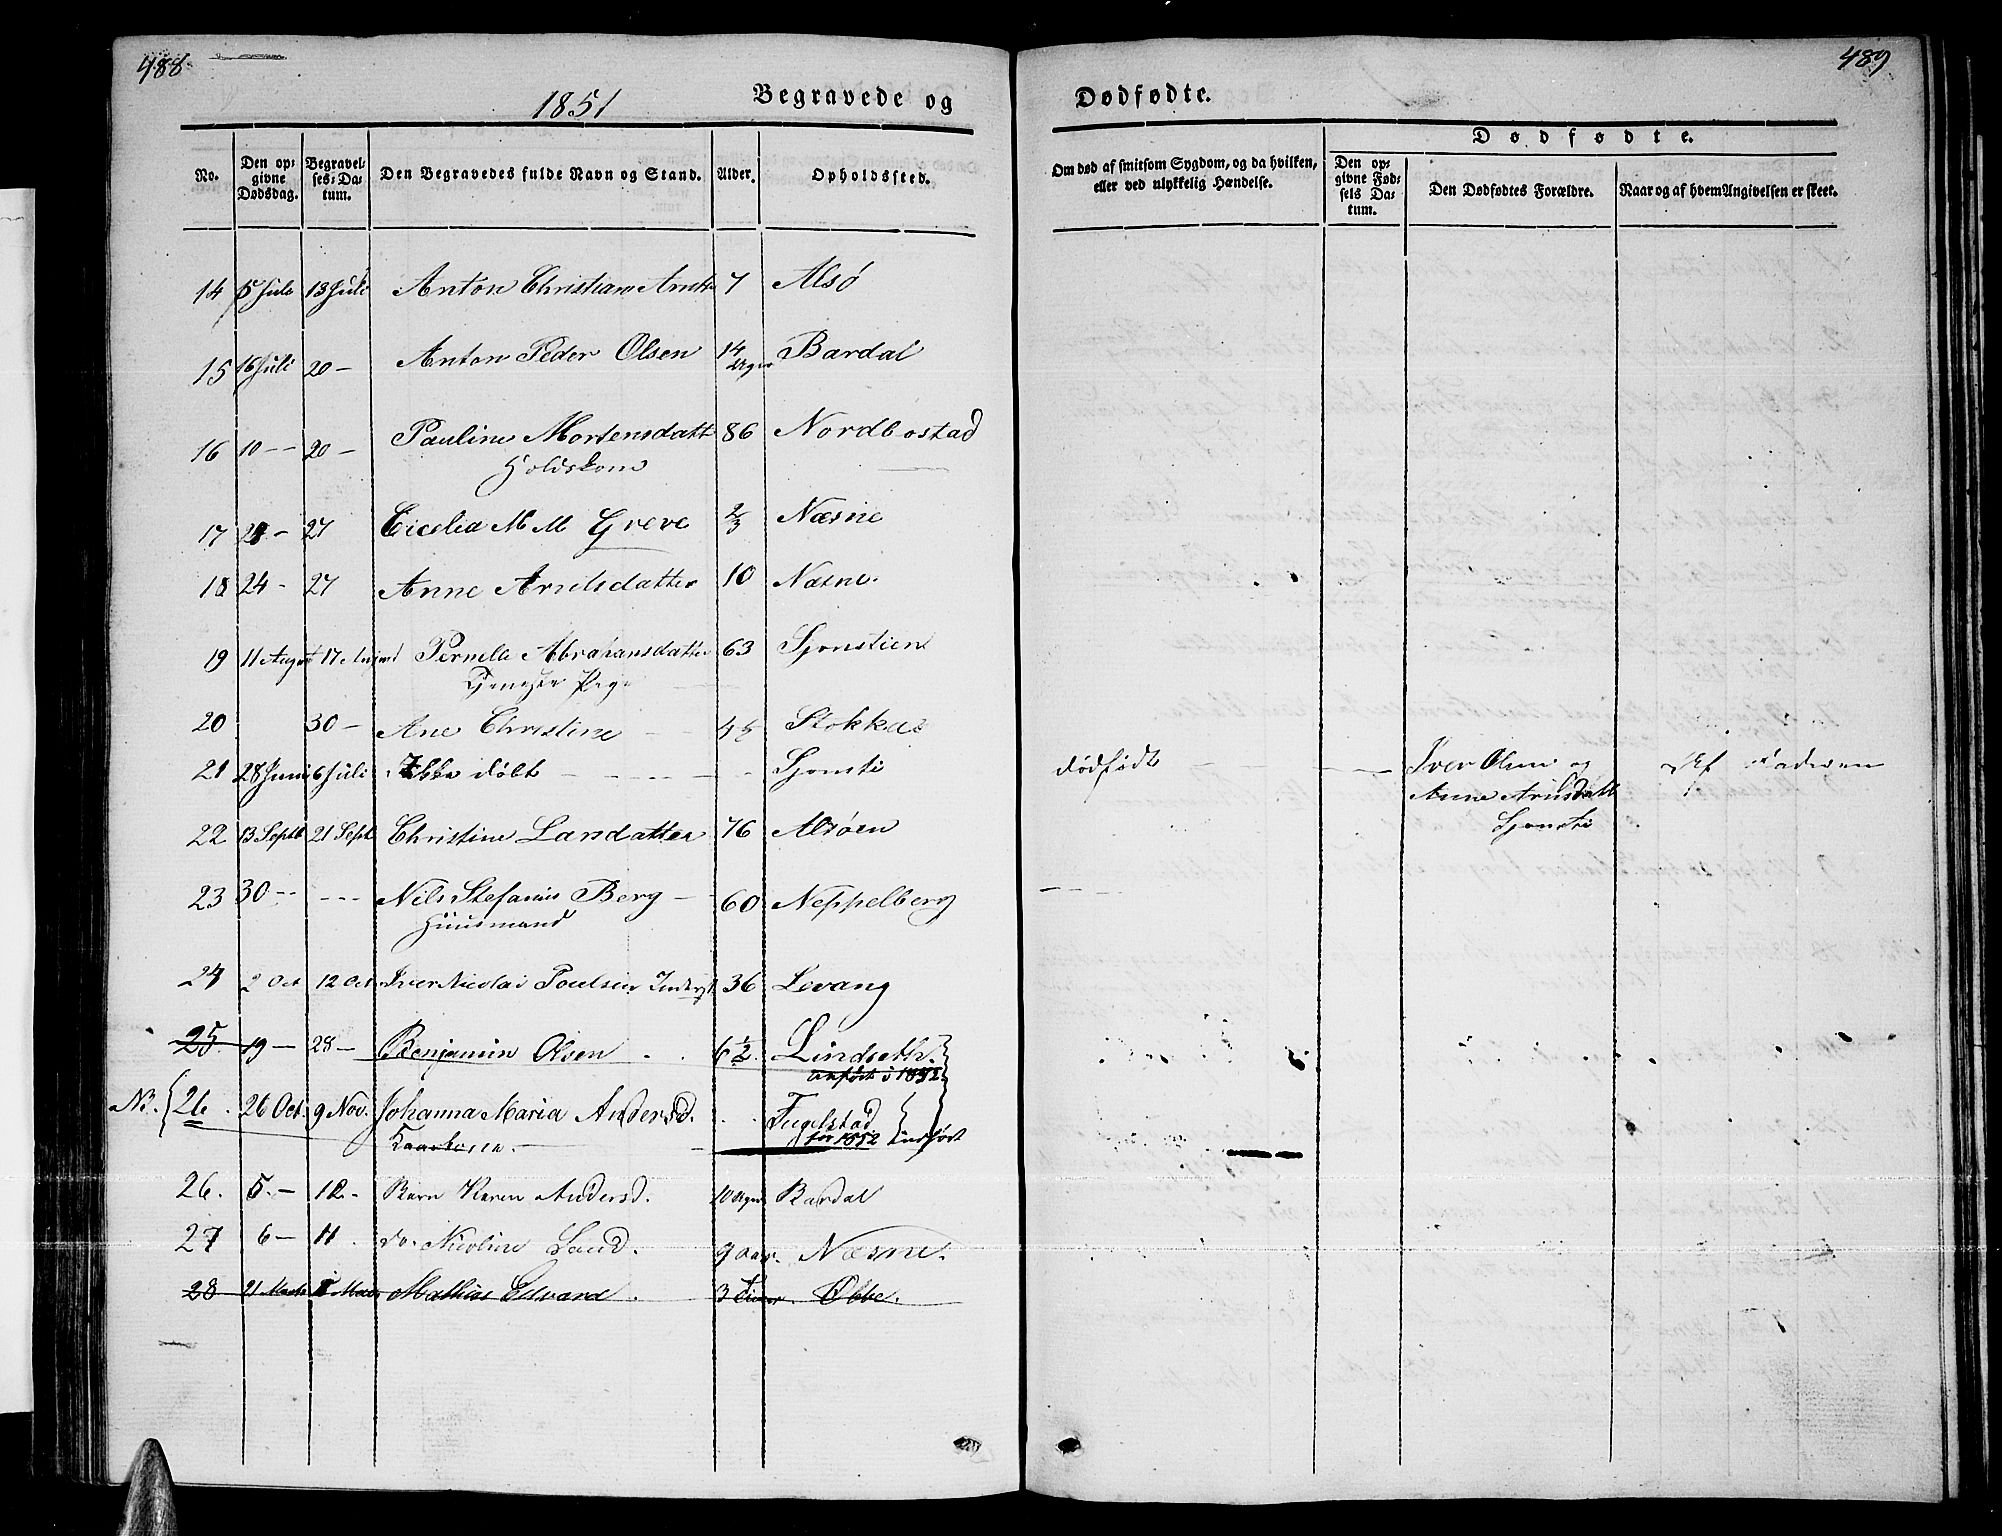 488
1851
Begravede og
No. Den opgivne Dødsdag. Begravelses-Datum. Den Begravedes fulde Navn og Stand. Alder. Opholdssted.
14 5 Juli 13 Juli Anton Christian 7 Alsø
15 16 Juli 20 – Anton Peder Olsen 14 Uger Bardal
16 10 – – 20 – Pauline Mortensdatt 86 Nordbostad
17 – 27 Cicelia M M Greve 2/3 Næsne
18 24 – 27 Anne Arntsdatter 10 Næsne.
19 11 August 17 August Pernelle Abrahamsdatter 63 Sjonstien
20 30 – Ane Christine Stokka
21 28 Juni 6 Juli Ikke døbt – – – – Sjonsti
22 13 Septb 21 Sept Christine Larsdatter 76 Alsøen
23 30 – – – – – Nils Stefanus Berg – 60 Neppelberg
Huusmand
24 2 Oct 12 Oct Iver Nicolai Poulsen 36 Levang
25 19 – 28 – Benjamin Olsen 6 1/2. Lindseth.
anført i 1852
NB. 26. 26 Oct. 9 Nov. Johanna Maria Andersd. Fugelstad
for 1852 indført
26. 5. – 12 – Barn Karen Andersd. 10 Uger Bardal
27 6 – 11. do. Nicoline Lund. 9 aar. Næsne.
28 21 Mathias Edvard. 3 Øbbe.
489
Dødfødte.
Om død af smitsom Sygdom, og da hvilken, eller ved ulykkelig Hændelse.
Dødfødte.
Den opgivne Fødsels Datum. Den Dødfødtes Forældre. Naar og af hvem Angivelsen er skeet.
dødfødt – – – Iver Olsen og Af Faderen
Anne Arnsdatt
Sjonsti